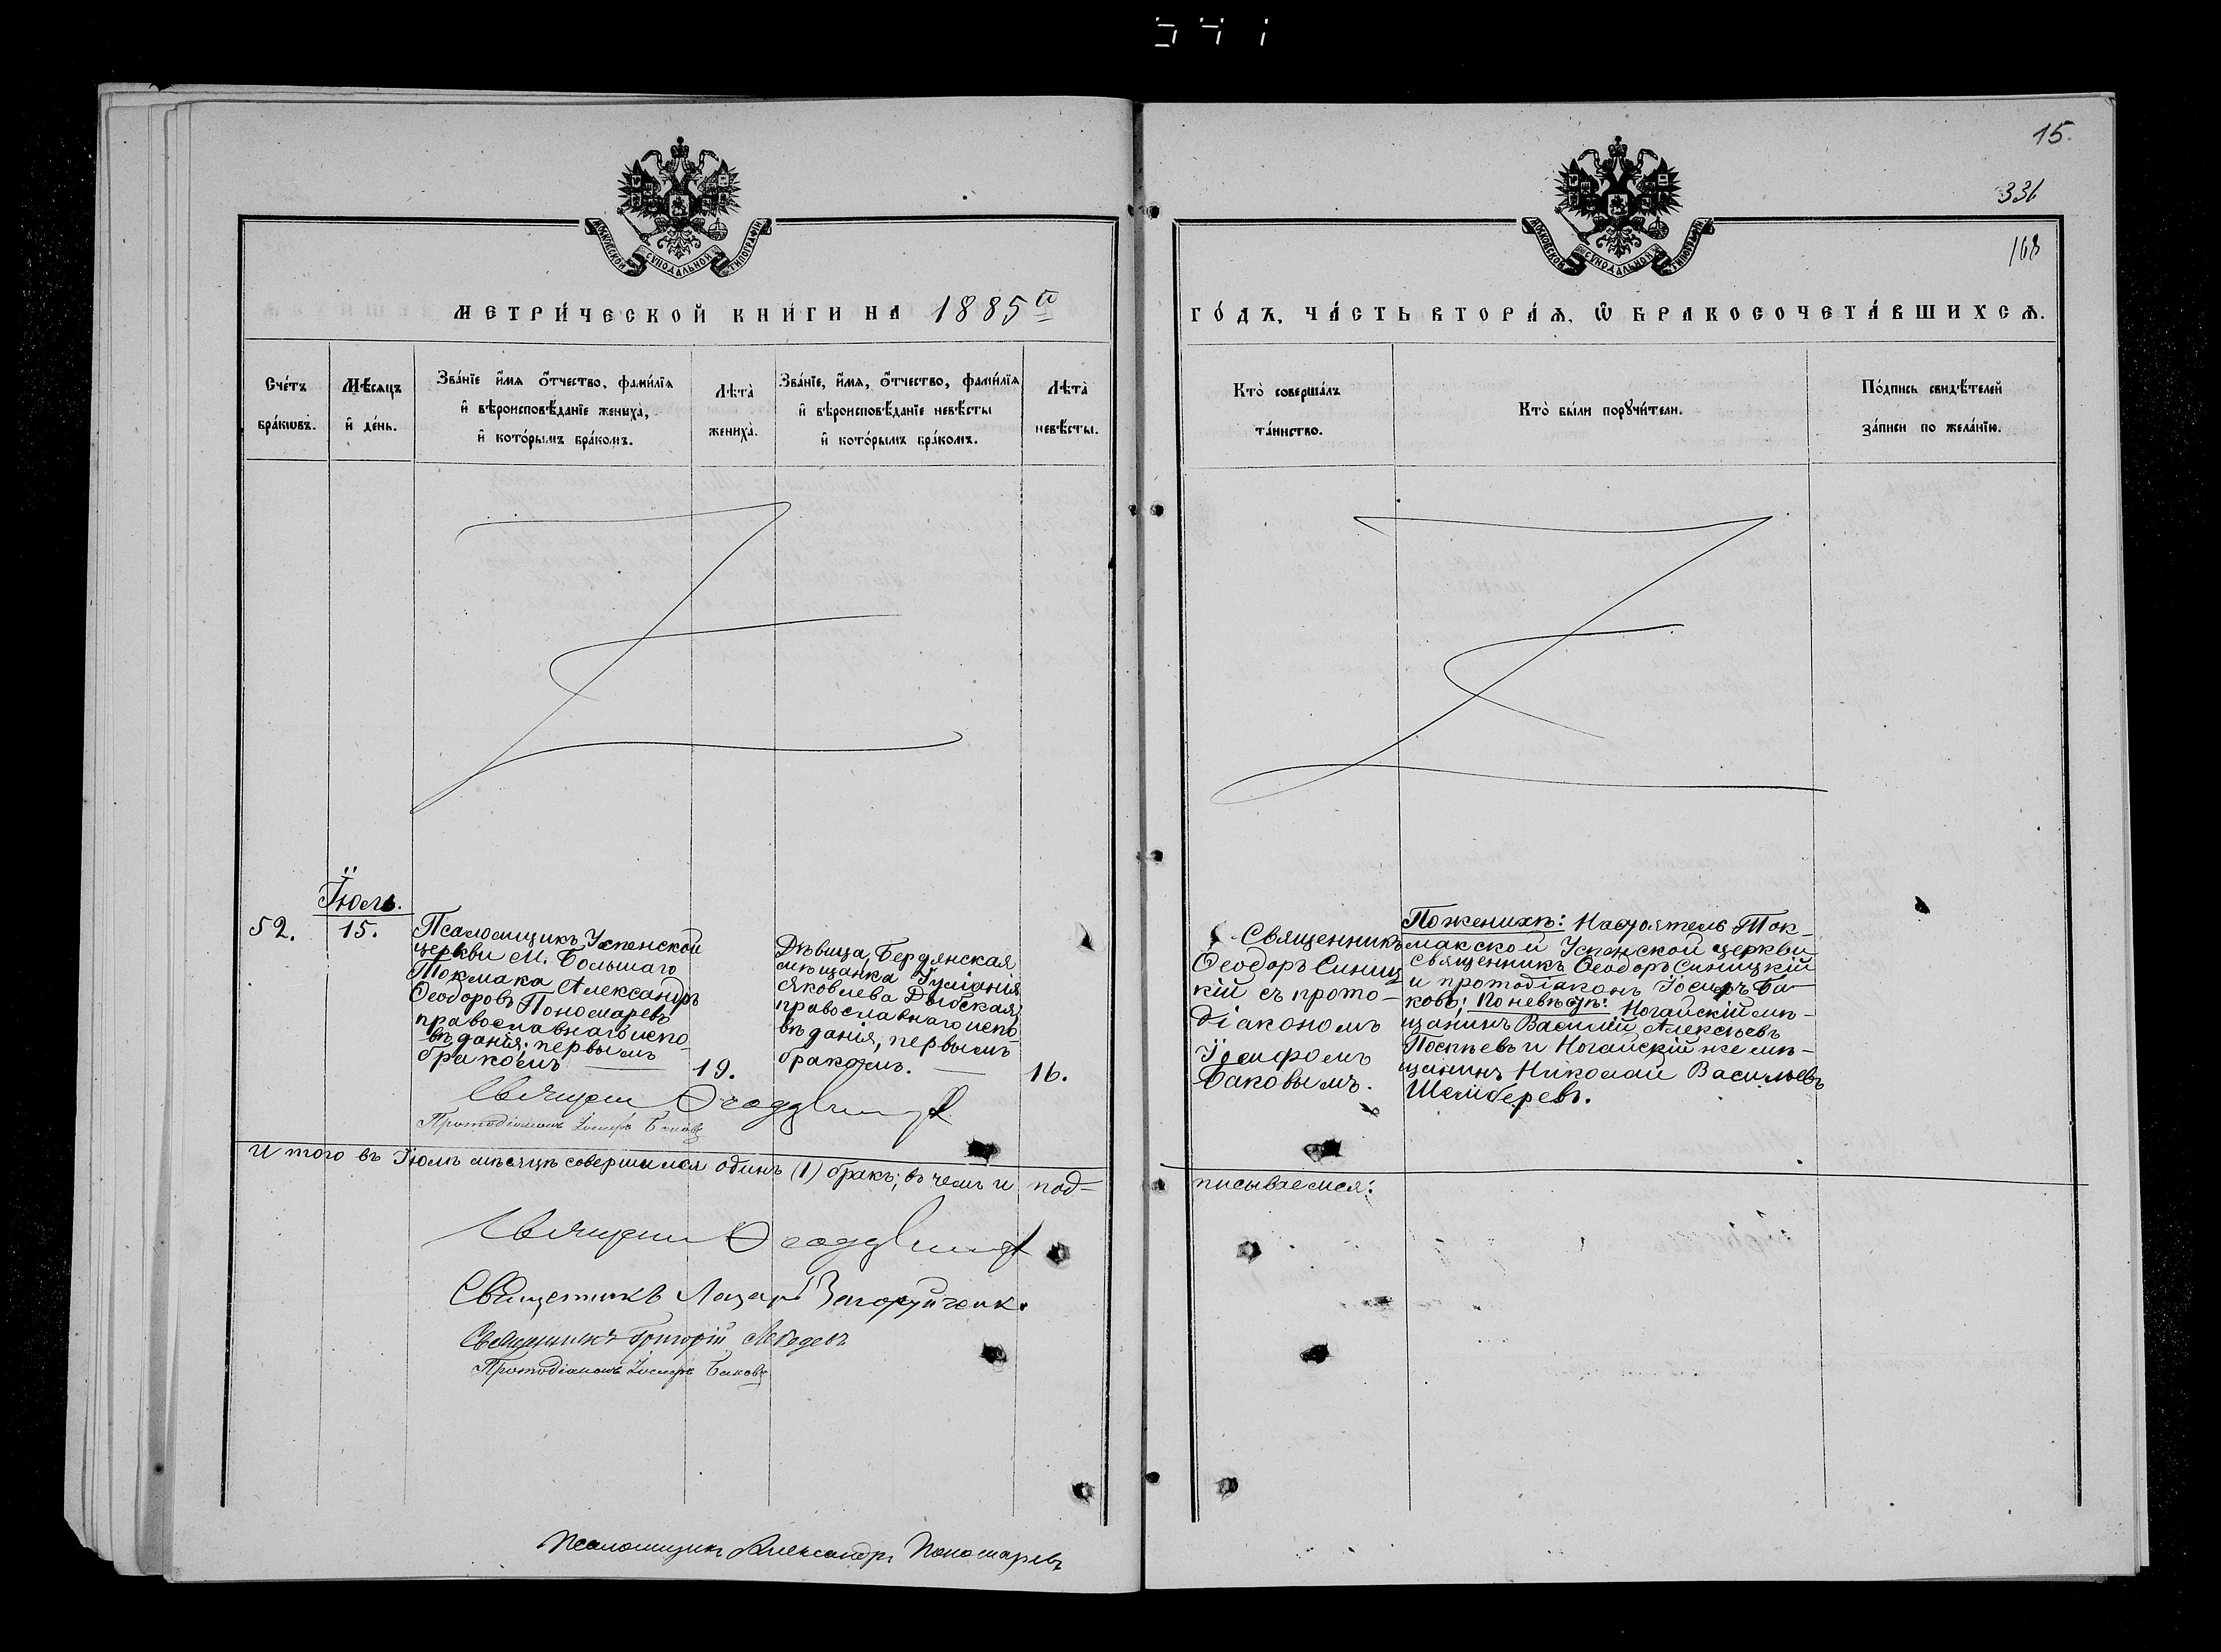 541
15.
331
168
МОСКОВСКОЙ СУНОДАЛЬНОЙ ТИПОГРАФІИ
МОСКОВСКОЙ СУНОДАЛЬНОЙ ТИПОГРАФІИ
МЕТРИ́ЧЕСКОЙ КНИ́ГИ НА 1885й
ГО́ДЪ, ЧА́СТЬ ВТОРА́Ѧ, Ѽ БРАКОСОЧЕТА́ВШИХСѦ.
Сче́тъ бра́кѡвъ.
Мѣ́сяцъ и҆ де́нь.
Зва́нїе и҆́мя ѻ҆́тчество, фами́лїя и҆ вѣроисповѣ́данїе жениха̀, и҆ кото́рымъ бра́комъ.
Лѣта̀ жениха̀.
Зва́нїе, и҆́мя, ѻ҆́тчество, фами́лїя и҆ вѣроисповѣ́данїе невѣ́сты и҆ кото́рымъ бра́комъ.
Лѣта̀ невѣ́сты.
Кто̀ соверша́лъ та́инство.
Кто̀ бы́ли порꙋчи́тели.
По́дпись свидѣ́телей за́писи по жела́нїю.
Іюль.
52.
15.
Псаломщикъ Успенской
церкви М. Большаго
Токмака Александръ
Ѳеодоровъ Пономаревъ
православнаго испо-
вѣданія; первымъ
бракомъ
19.
Дѣвица, Бердянская
мѣщанка Іуліанія
Яковлева
православнаго испо-
вѣданія, первымъ
бракомъ.
16.
Священникъ
Ѳеодоръ Синиц
кій съ прото-
діакономъ
Іосифомъ
Баковымъ.
По женихѣ: Настоятель Ток-
макской Успенской церкви
священникъ Ѳеодоръ Синицкій
и протодіаконъ Іосифъ Ба-
ковъ; по невѣстѣ: Ногайскій мѣ-
щанинъ Василій Алексѣевъ
Поспѣевъ и Ногайскій же мѣ-
щанинъ Николай Васильевъ
Шемберевъ.
Протодіаконъ Іосифъ Баковъ
Итого въ Іюлѣ мѣсяцѣ совершился одинъ (1) бракъ; въ чемъ и под-
писываемся:
Священникъ Лазарь
Священникъ Григорій Лебедевъ
Протодіаконъ Іосифъ Баковъ
Псаломщикъ Александръ Пономаревъ